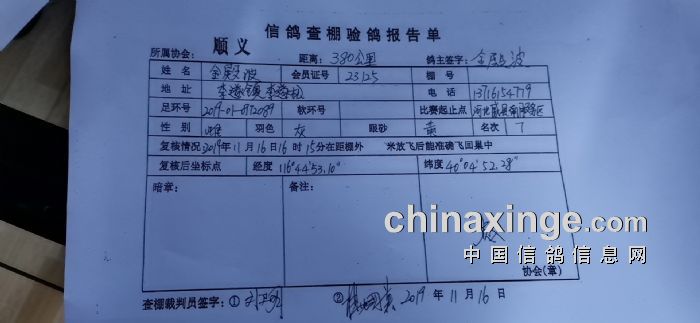 信鸽查棚验鸽报告单
所属协会: 顺义 距离: 380公里 鸽主签字: 金殿波
姓名 金殿波 会员证号 23125 棚号
地址 李遂镇 电话 13716154779
足环号 2019-01-0972089 软环号 比赛起止点
性别 雄 羽色 灰 眼砂 黄 名次 7
复核情况 2019年11月16日16时15分在距棚外 米放飞后能准确飞回巢中
复核后坐标点 经度 116°44′53.10″ 纬度 40°04′52.28″
暗章: 备注:
chinaxinge.com
中国信鸽信息网
协会(章)
查棚裁判员签字: ① ② 2019年11月16日